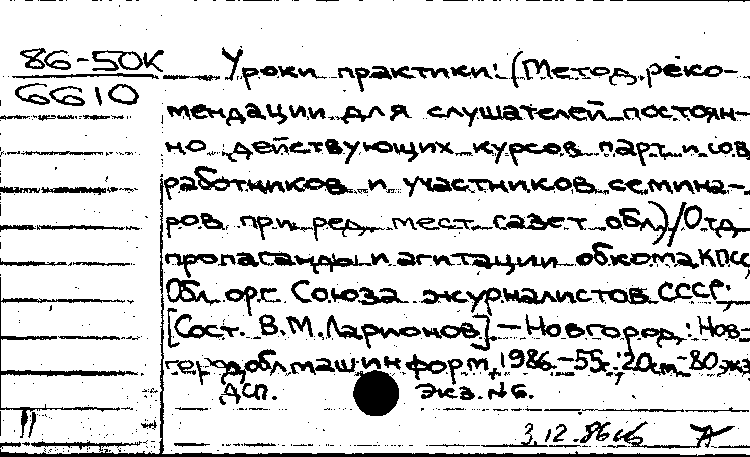 86-50К
6610
Уроки практики: (Метод. реко-
мендации для слушателей постоян-
но действующих курсов парт. и сов
работников и участников семина-
ров при ред. мест. газет обл.)/Отд
пропаганды и агитации обкома КПСС,
Обл. орг. Союза журналистов СССР;
[Сост. В.М. Ларионов]. – Новгород,: Нов-
город облмашинформ, 1986. – 55с.; 20см. – 80экз
ДСП. Экз. №6.
3.12.86